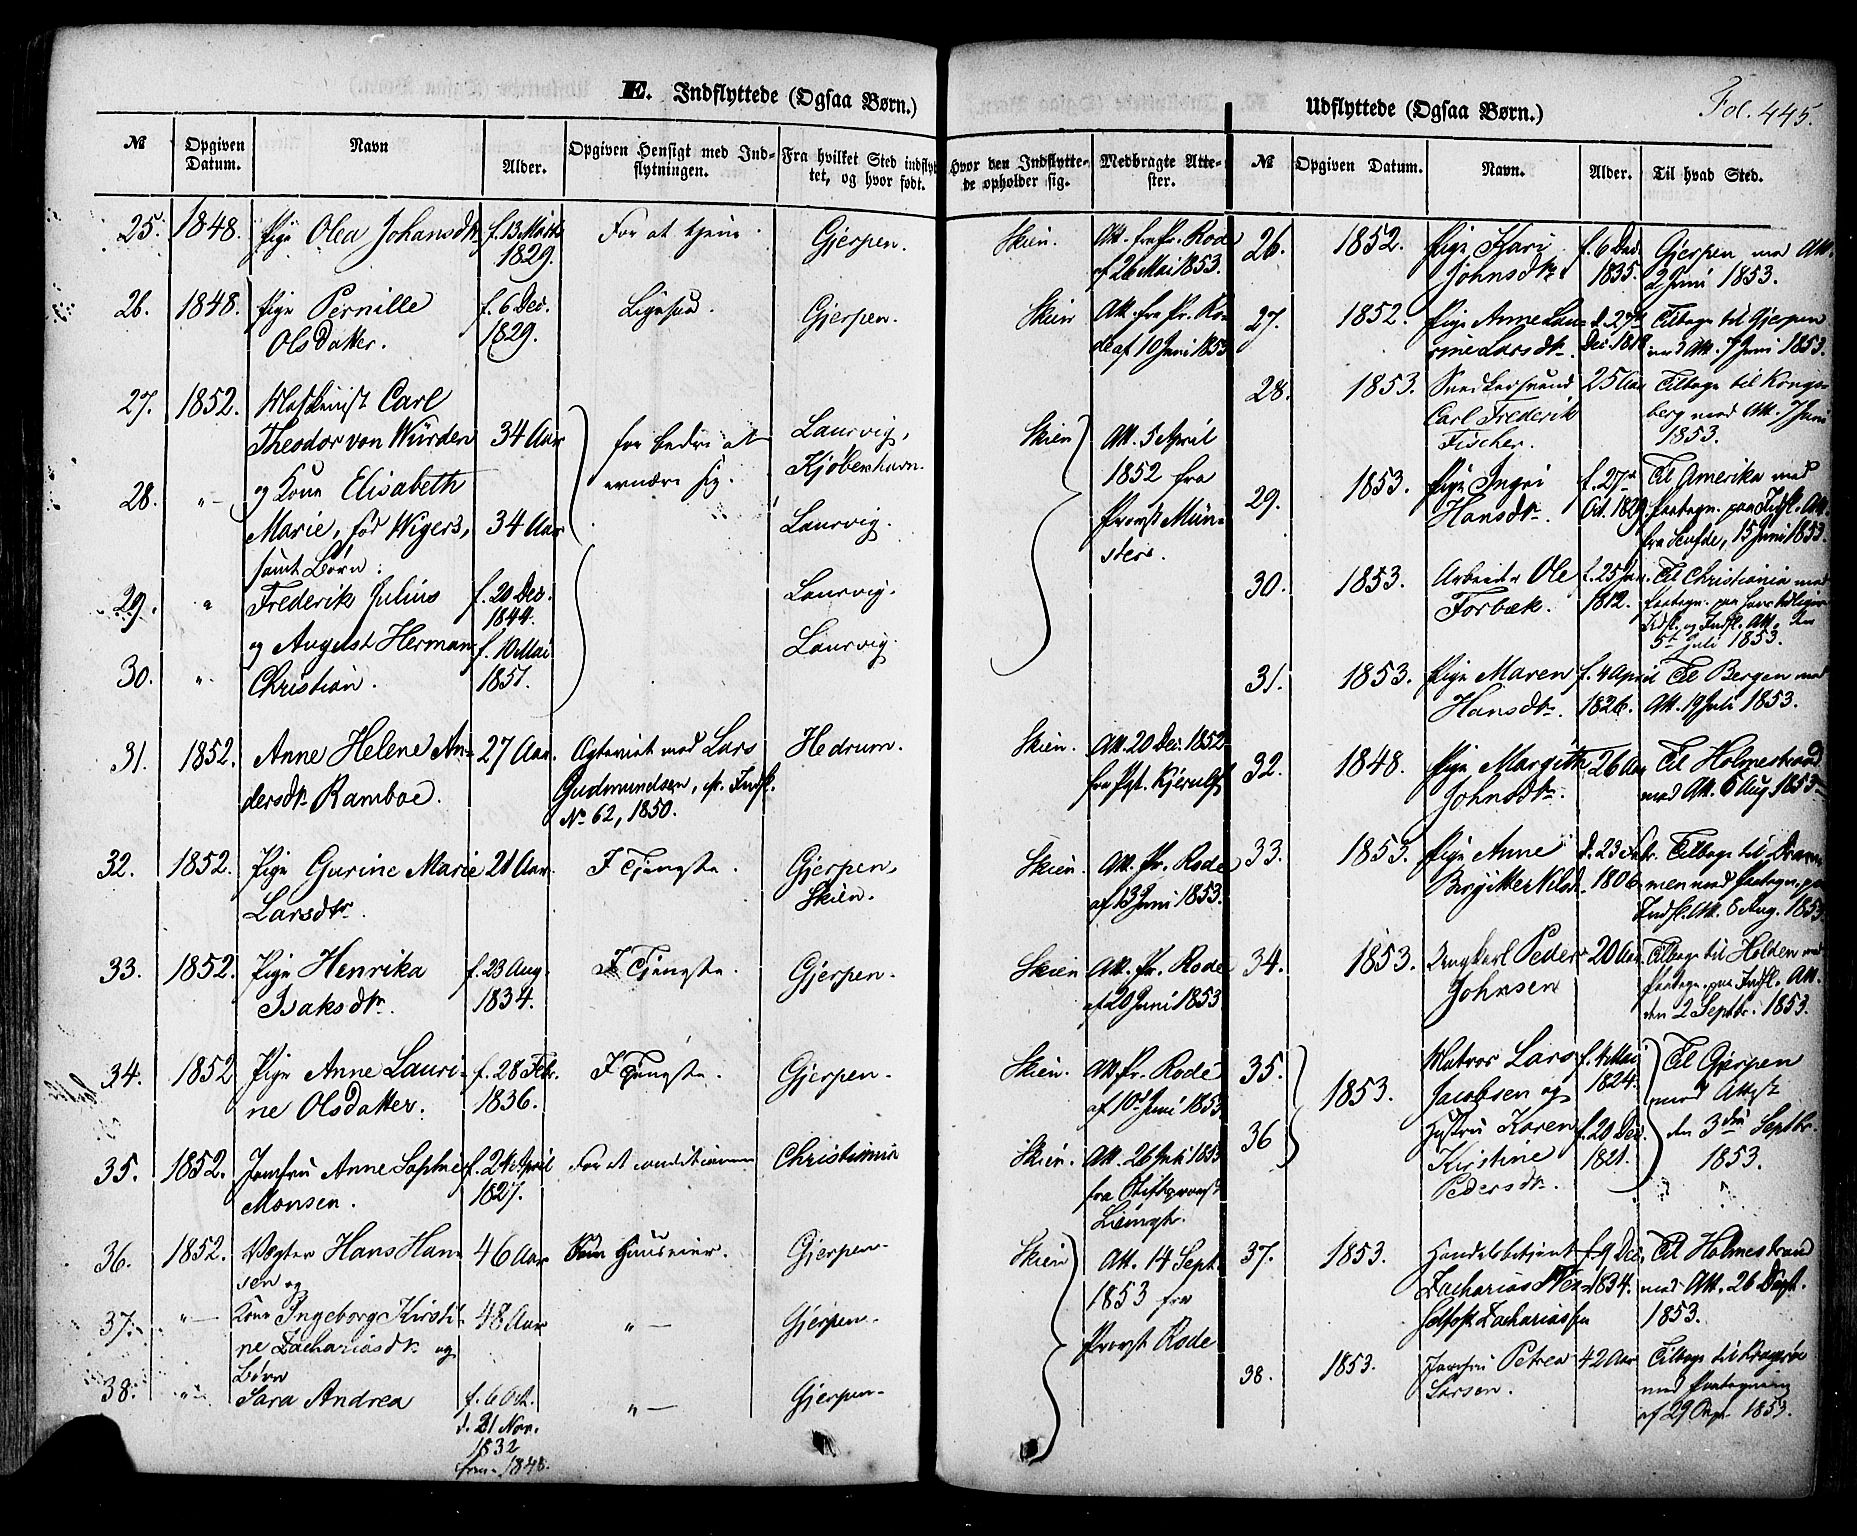 E. Indflyttede (Ogsaa Børn.)
№
Opgiven Datum.
Navn
Alder.
Opgiven Hensigt med Ind-
flytningen.
Fra hvilket Sted indflyt
tet, og hvor født.
Hvor den Indflytte-
de opholder sig.
Medbragte Atte-
ster.
25. 1848. Pige Olea Johansdtr f. 13 Marts 1829. For at tjene. Gjerpen. Skien. Att. fra Pr. Rode
af 26 Mai 1853.
26. 1848. Pige Pernille f. 6 Dec. Ligesaa. Gjerpen. Skien Att. fra Pr. Ro-
Olsdatter. 1829. de af 10 Juni 1853
27. 1852. Maskinist Carl
Theodor von Würden 34 Aar for bedre at Laurvig, Skien Att. 5 April
ernære sig. Kjøbenhavn. 1852 fra
28. " og Kone Elisabeth Provst Mün-
Marie, fød Wigers, 34 Aar Laurvig. sters.
samt Børn:
29. " Frederik Julius f. 20 Dec. Laurvig.
1844.
og August Herman f. 10 Mai Laurvig.
30. " Christian. 1851.
31. 1852. Anne Helene An- 27 Aar. Ægteviet med Lars Hedrum. Skien. Att. 20 Dec. 1852
dersdtr Ramboe. Gudmundsen, cfr. Indfl. fra Pgt. Kjerulf
No 62, 1850.
32. 1852. Pige Gurine Marie 21 Aar. I Tjeneste. Gjerpen, Skien. Att. Pr. Rode
Larsdtr. Skien. af 13 Juni 1853.
33. 1852. Pige Henrika f. 23 Aug. I Tjeneste. Gjerpen. Skien Att. Pr. Rode
Isaksdtr. 1834. af 20 Juni 1853
34. 1852 Pige Anne Lauri- f. 28 Febr. I Tjeneste. Gjerpen. Skien. Att. Pr. Rode
ne Olsdatter. 1836. af 10de Juni 1853
35. 1852. Jomfru Anne Sophie f. 24 April For at conditionere Christiania Skien. Att. 26 Juli 1853
Monsen. 1827. fra Stiftsprovst
36. 1852. Vægter Hans Han- 46 Aar Huuseier. Gjerpen. Skien Att. 14 Sept.
sen og 1853 fra
37. " Kone Ingeborg Kirsti- 48 Aar " Gjerpen. Provst Rode
ne Zachariasdtr og
Børn
38. " Sara Andrea f. 6 Oct. " Gjerpen.
d. 21 Nov.
1832
1848.
Udflyttede (Ogsaa Børn.)
Fol. 445.
№
Opgiven Datum.
Navn.
Alder.
Til hvad Sted.
26. 1852. Pige Kari f. 6 Dec. Gjerpen med Att.
Johnsdtr 1835. 2 Juni 1853.
27. 1852. Pige Anne Lau- d. 27de Tilbage til Gjerpen
rine Larsdtr. Dec. 1818 med Att. 7 Juni 1853.
28. 1853. Snedkersvend 25 Aar Tilbage til Kongs-
Carl Frederik berg med Att. 7 Juni
Fischer. 1853.
29. 1853. Pige Ingri f. 27de Til Amerika med
Hansdtr. Oct. 1829. Paategn. paa Indfl. Att.
fra 15 Juni 1853.
30. 1853. Arbeider Ole f. 25 Jan. Til Christiania med
Forbæk. 1812. Paategn. paa
Indfl. Att. den
5te Juli 1853.
31. 1853. Pige Maren f. 4 April Til Bergen med
Hansdtr. 1826. Att. 19 Juli 1853.
32. 1848. Pige Margith 26 Aar Til Holmestrand
Johnsdtr. med Att. 6 Aug. 1853
33. 1853. Pige Anne Tilbage til Dram-
Birgitte Nilsd. 1806. men med Paategn. paa
Indfl. Att. 8 Aug. 1853
34. 1853. Ungkarl Peder 20 Aar Tilbage til Holden med
Johnsen Paategn. paa Indfl. Att.
den 2 Septbr. 1853.
35. Matros Lars f. 4 Mai Til Gjerpen
1853. Jacobsen og 1824. med Attest
36 Hustru Karen f. 20 Dec. den 3die Septbr.
Kirstine 1821. 1853.
Pedersdtr.
37. 1853. Handelsbetjent f. 9 Dec. Til Holmestrand
Zacharias 1834. med Att. 26 Sept.
Zachariassen 1853.
38. 1853. Jomfru Petrea 42 Aar Tilbage til Kragerøe
Larsen. med Paategning
af 29 Sept 1853.